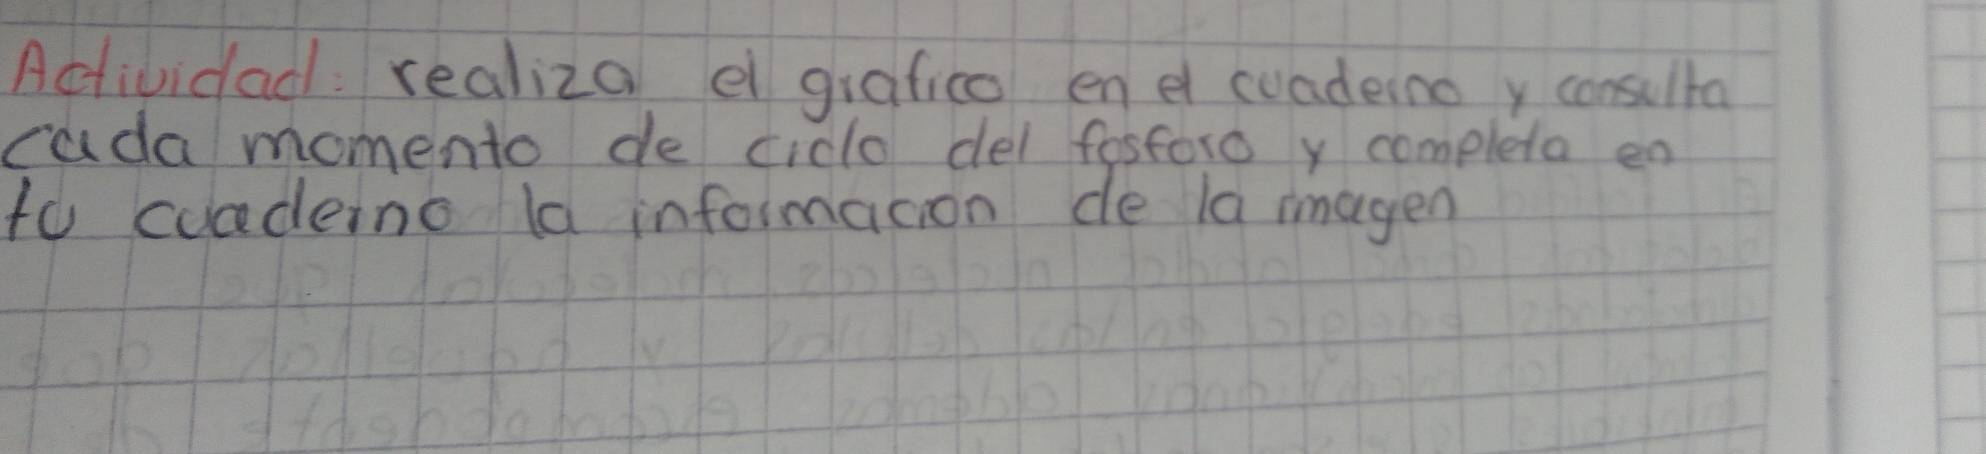 Actividad: realiza el grafico en el cuaderno y consulta
cada momento de ciclo del fosforo y completa en
tu cuaderno la informacion de la imagen